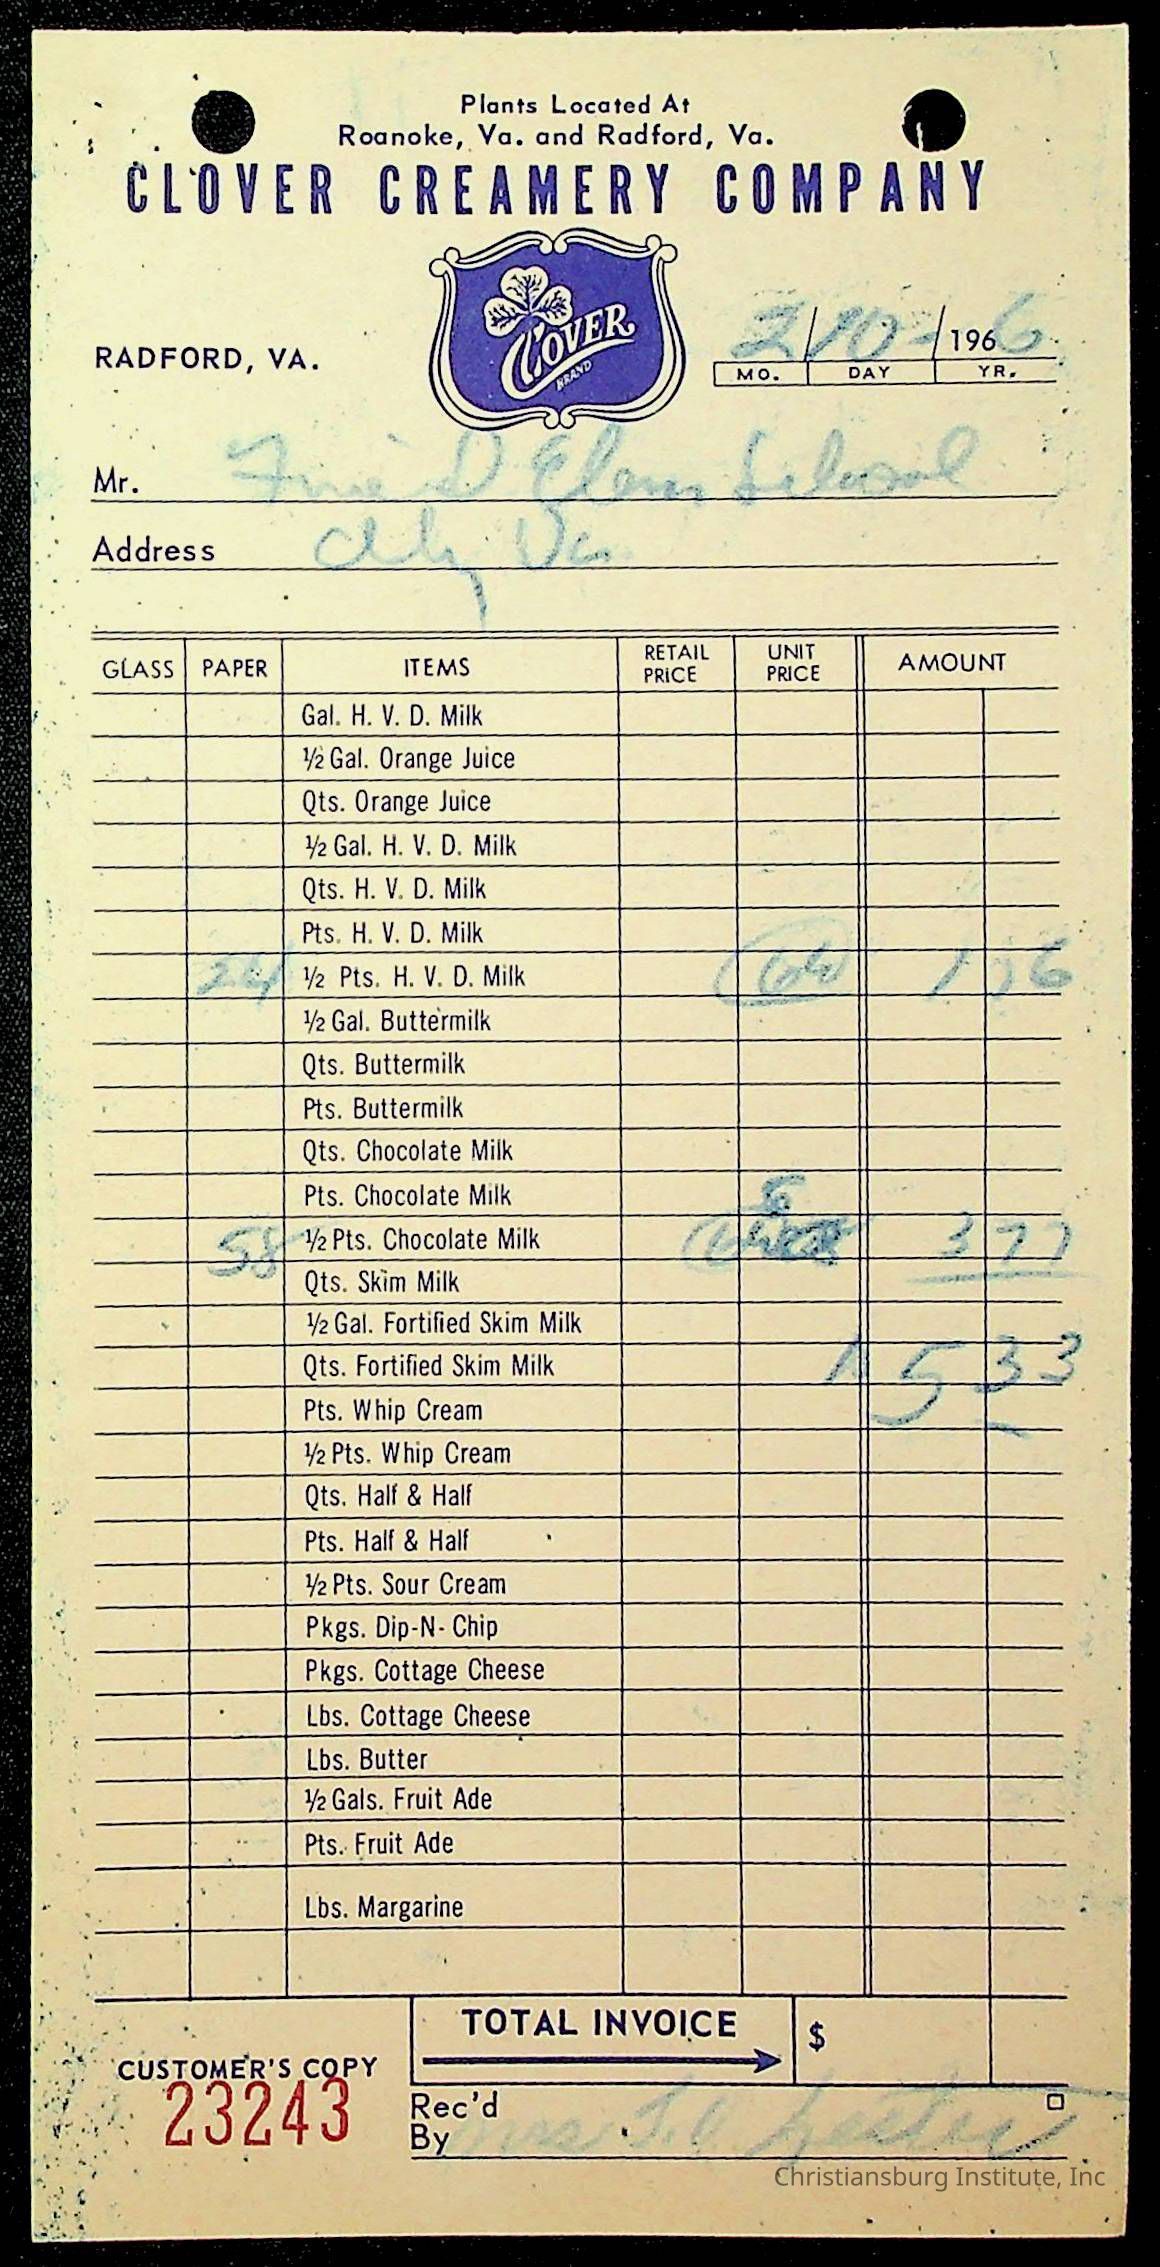 Plants Located At
Roanoke, Va. and Radford, Va.
CLOVER CREAMERY COMPANY
CLOVER
BRAND
RADFORD, VA.
2/10-/1966
MO. DAY YR.
Mr. Friend Elem School
Address City Va.
GLASS PAPER ITEMS RETAIL PRICE UNIT PRICE AMOUNT
Gal. H. V. D. Milk
½ Gal. Orange Juice
Qts. Orange Juice
½ Gal. H. V. D. Milk
Qts. H. V. D. Milk
Pts. H. V. D. Milk
24 ½ Pts. H. V. D. Milk 1 56
½ Gal. Buttermilk
Qts. Buttermilk
Pts. Buttermilk
Qts. Chocolate Milk
Pts. Chocolate Milk
58 ½ Pts. Chocolate Milk 3 77
Qts. Skim Milk
½ Gal. Fortified Skim Milk
Qts. Fortified Skim Milk 5 33
Pts. Whip Cream
½ Pts. Whip Cream
Qts. Half & Half
Pts. Half & Half
½ Pts. Sour Cream
Pkgs. Dip-N-Chip
Pkgs. Cottage Cheese
Lbs. Cottage Cheese
Lbs. Butter
½ Gals. Fruit Ade
Pts. Fruit Ade
Lbs. Margarine
TOTAL INVOICE $
CUSTOMER'S COPY
23243
Rec'd
By Mrs. T. C. Lester
Christiansburg Institute, Inc